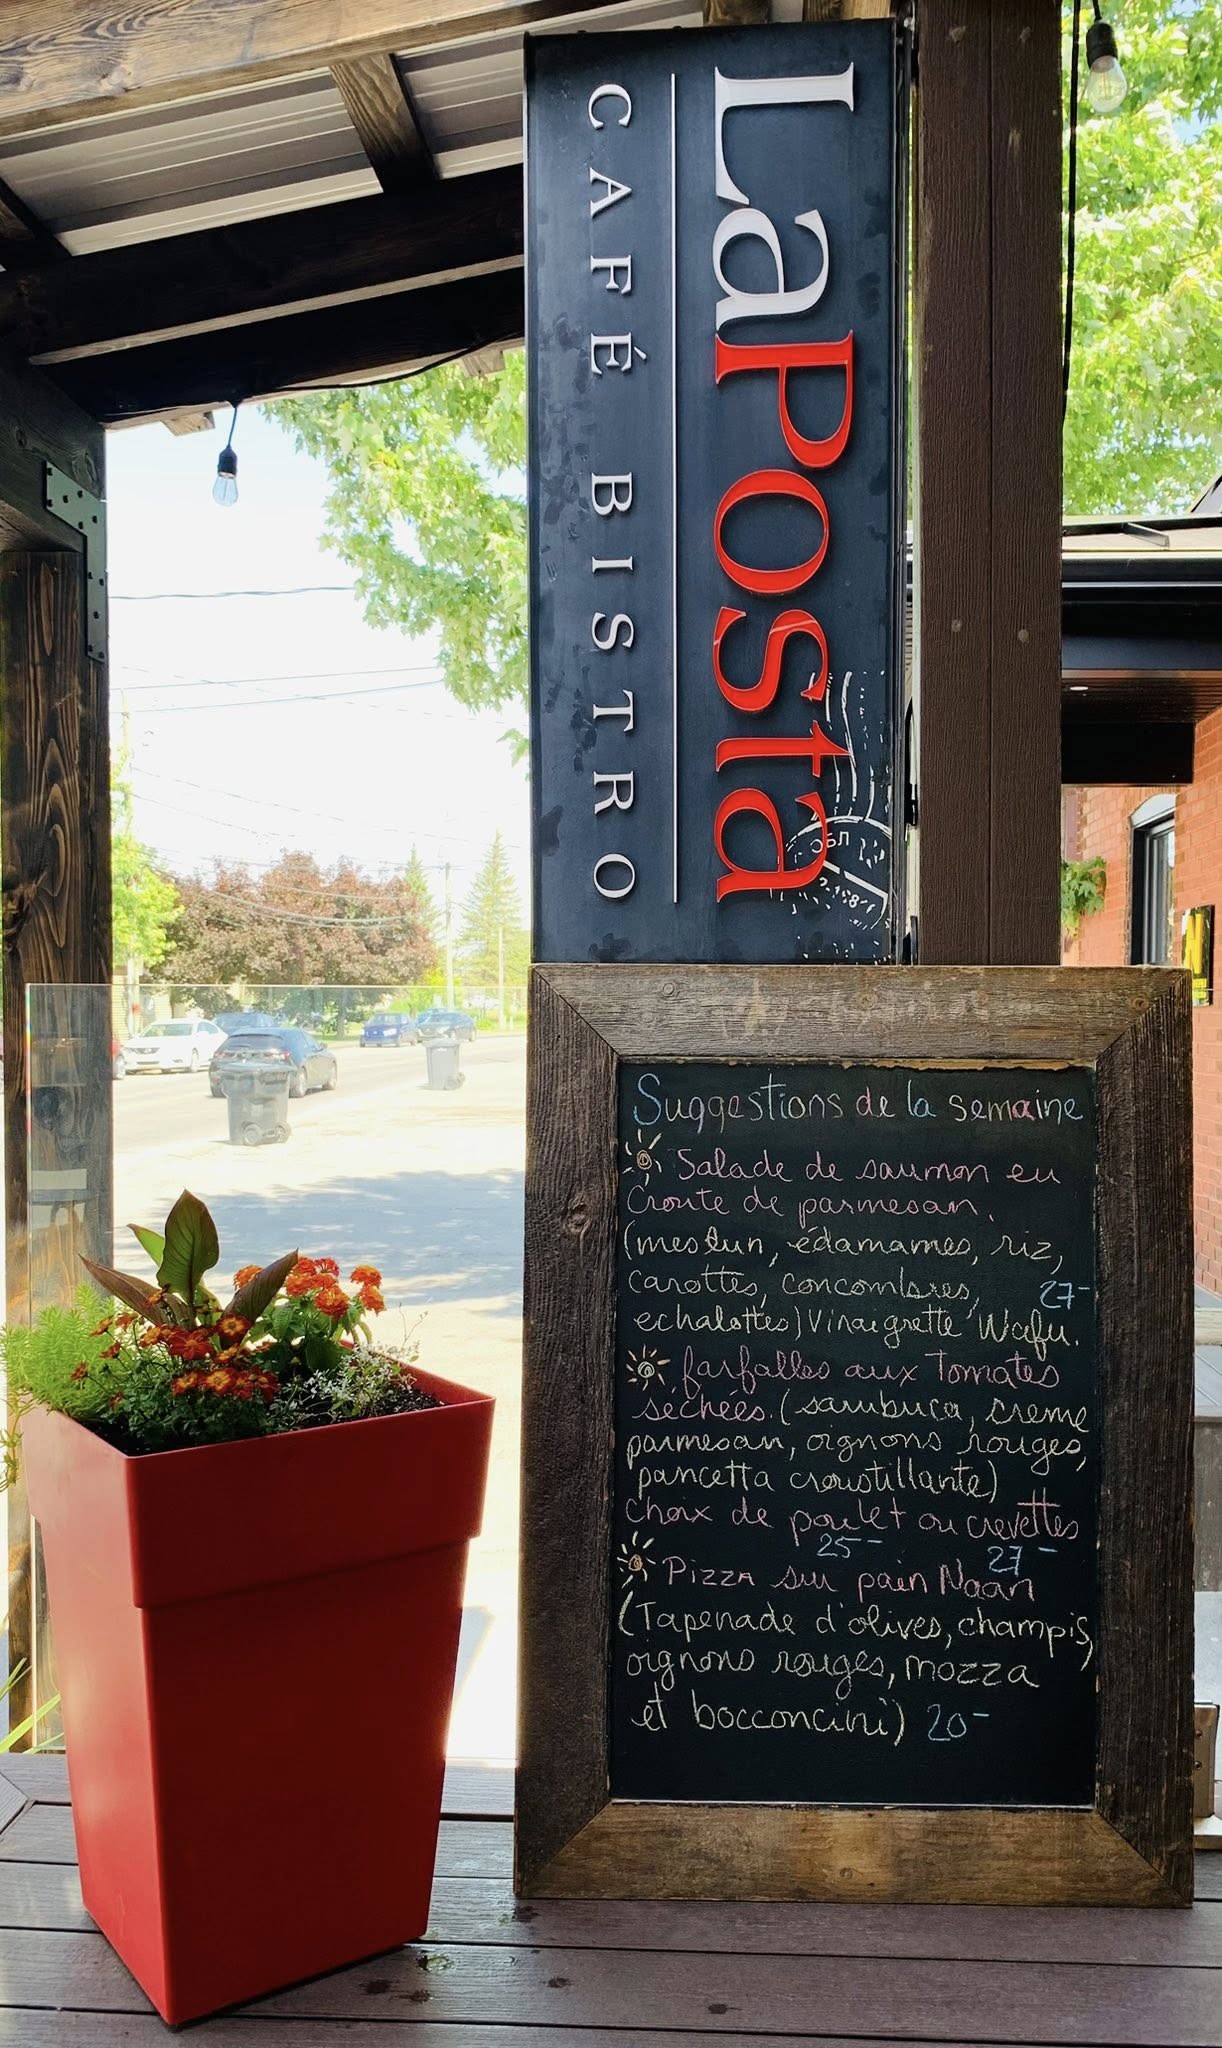 LaPosta
CAFÉ BISTRO
Suggestions de la semaine
Salade de saumon en
Croute de parmesan.
(mesclun, édamames, riz,
carottes, concombres,
27-
echalottes) Vinaigrette Wafu.
farfalles aux Tomates
séchées. (sambuca, creme
parmesan, oignons rouges,
pancetta croustillante)
Choix de poulet ou crevettes
25- 27-
Pizza sur pain Naan
(Tapenade d'olives, champis,
oignons rouges, mozza
et bocconcini) 20-